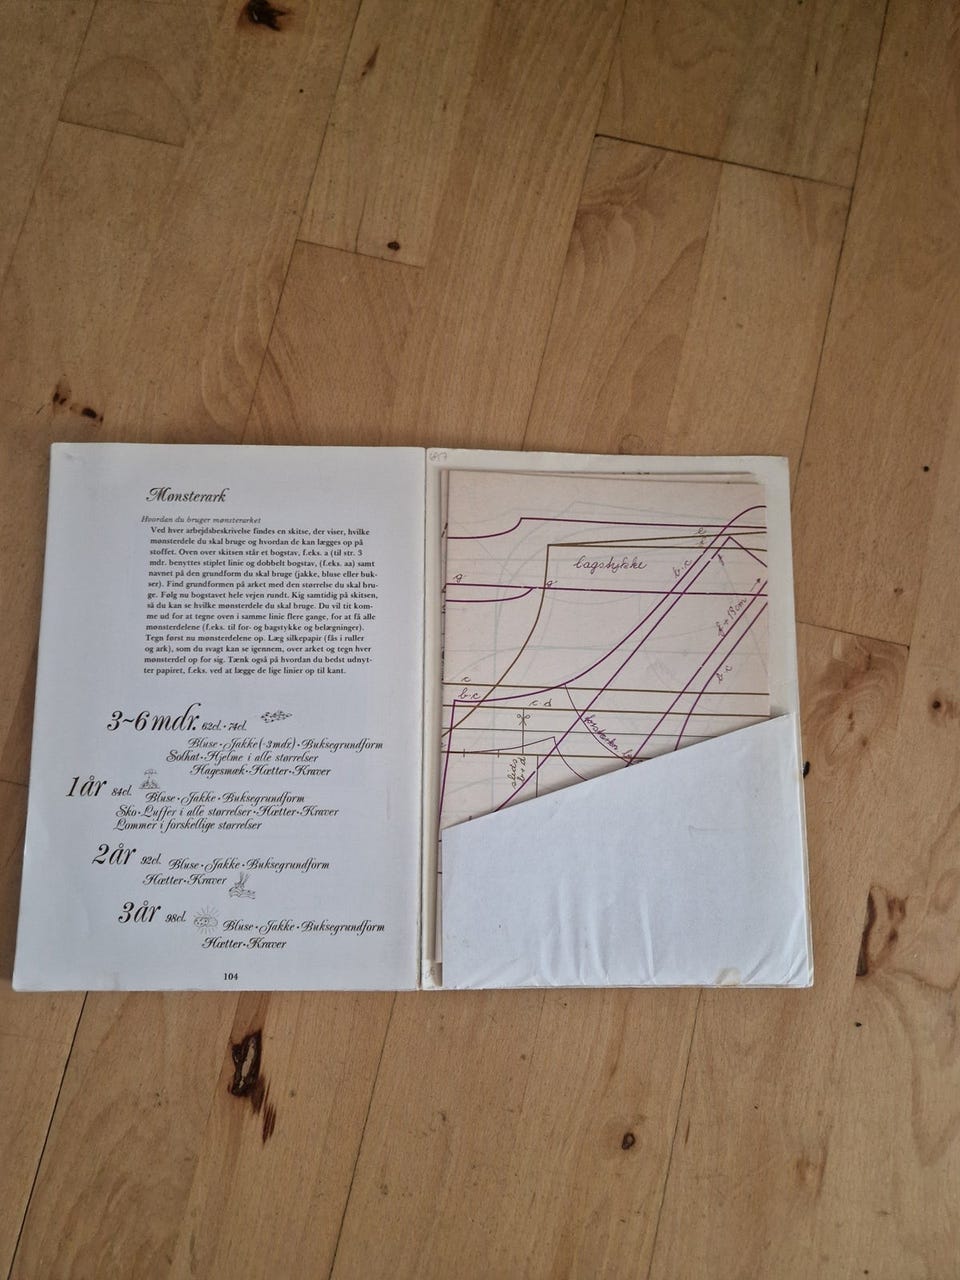 Mønsterark
Hvordan du bruger mønsterarket
Ved hver arbejdsbeskrivelse findes en skitse, der viser, hvilke
mønsterdele du skal bruge og hvordan de kan lægges op på
stoffet. Oven over skitsen står et bogstav, f.eks. a (til str. 3
mdr. benyttes stiplet linie og dobbelt bogstav, (f.eks. aa) samt
navnet på den grundform du skal bruge (jakke, bluse eller buk-
ser). Find grundformen på arket med den størrelse du skal bru-
ge. Følg nu bogstavet hele vejen rundt. Kig samtidig på skitsen,
så du kan se hvilke mønsterdele du skal bruge. Du vil tit kom-
me ud for at tegne oven i samme linie flere gange, for at få alle
mønsterdelene (f.eks. til for- og bagstykke og belægninger).
Tegn først nu mønsterdelene op. Læg silkepapir (fås i ruller
og ark), som du svagt kan se igennem, over arket og tegn hver
mønsterdel op for sig. Tænk også på hvordan du bedst udnyt-
ter papiret, f.eks. ved at lægge de lige linier op til kant.
3~6 mdr. 62cl.·74cl.
Bluse·Jakke(-3mdr.)·Buksegrundform
Solhat·Hjelme i alle størrelser
Hagesmæk·Hætter·Kraver
1år 84cl.
Bluse·Jakke·Buksegrundform
Sko·Luffer i alle størrelser·Hætter·Kraver
Lommer i forskellige størrelser
2år 92cl. Bluse·Jakke·Buksegrundform
Hætter·Kraver
3år 98cl. Bluse·Jakke·Buksegrundform
Hætter·Kraver
104
bagstykke
b·c
g
g
f+13cm
b·c
c
b·c
c·d
slids
b+d